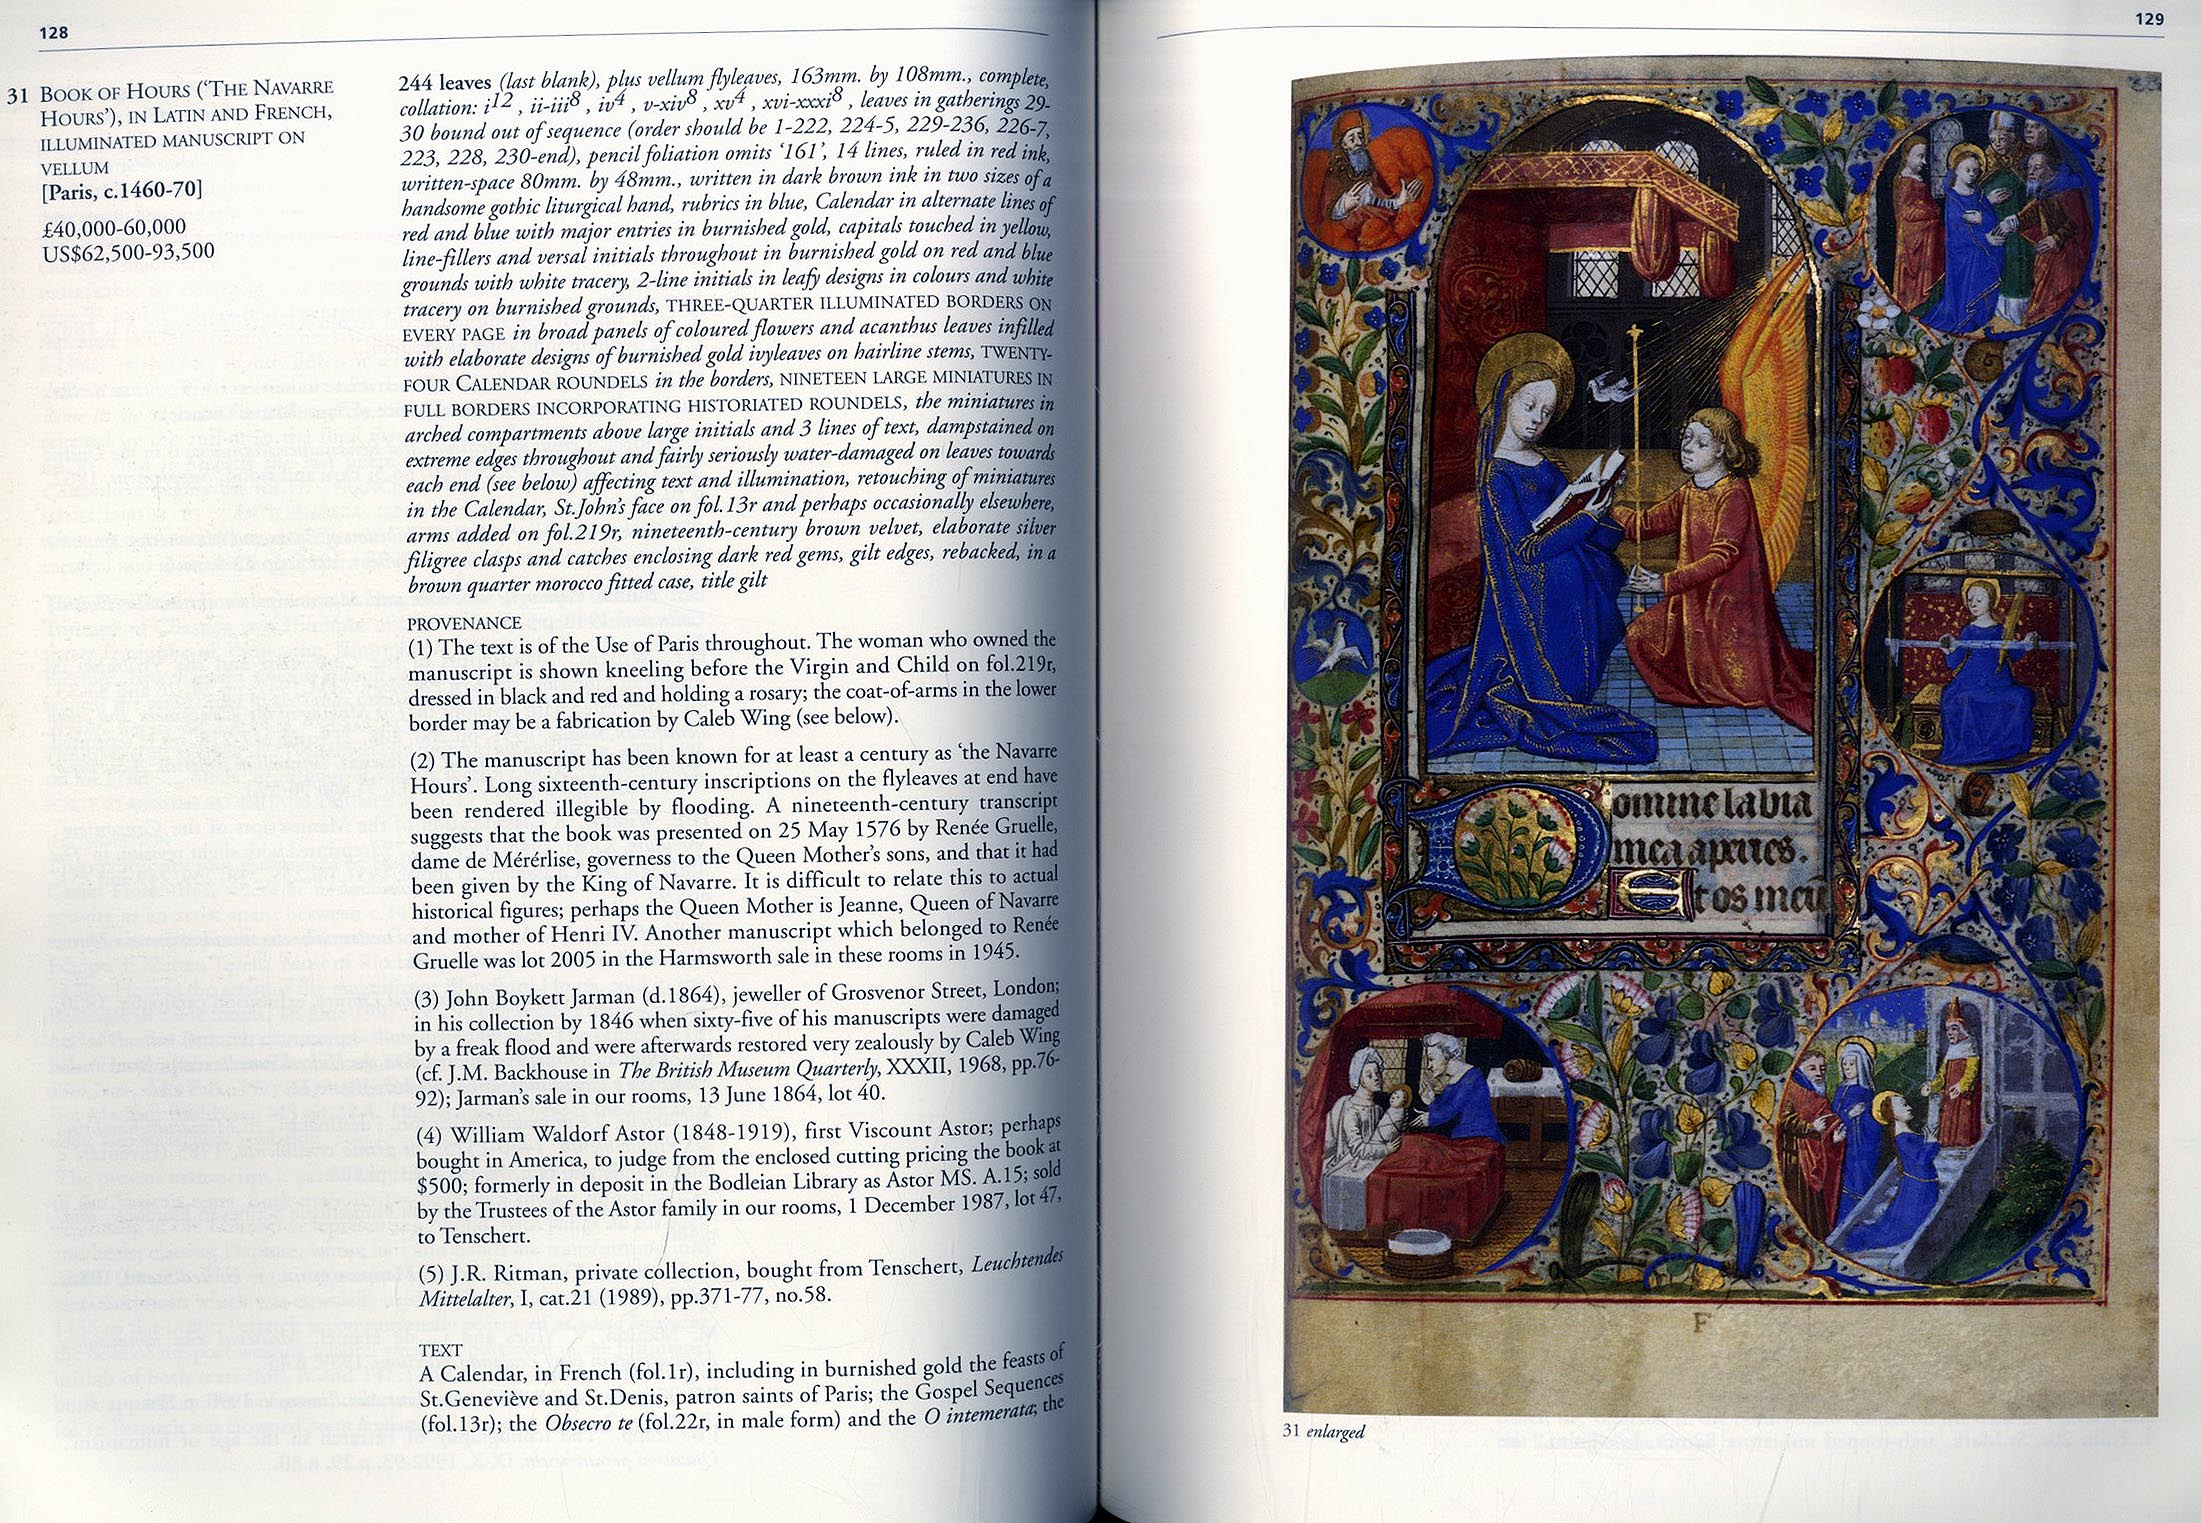 128
31 BOOK OF HOURS (‘THE NAVARRE
HOURS’), IN LATIN AND FRENCH,
ILLUMINATED MANUSCRIPT ON
VELLUM
[Paris, c.1460-70]
£40,000-60,000
US$62,500-93,500
244 leaves (last blank), plus vellum flyleaves, 163mm. by 108mm., complete,
collation: i12 , ii-iii8 , iv4 , v-xiv8 , xv4 , xvi-xxxi8 , leaves in gatherings 29-
30 bound out of sequence (order should be 1-222, 224-5, 229-236, 226-7,
223, 228, 230-end), pencil foliation omits ‘161’, 14 lines, ruled in red ink,
written-space 80mm. by 48mm., written in dark brown ink in two sizes of a
handsome gothic liturgical hand, rubrics in blue, Calendar in alternate lines of
red and blue with major entries in burnished gold, capitals touched in yellow,
line-fillers and versal initials throughout in burnished gold on red and blue
grounds with white tracery, 2-line initials in leafy designs in colours and white
tracery on burnished grounds, THREE-QUARTER ILLUMINATED BORDERS ON
EVERY PAGE in broad panels of coloured flowers and acanthus leaves infilled
with elaborate designs of burnished gold ivyleaves on hairline stems, TWENTY-
FOUR CALENDAR ROUNDELS in the borders, NINETEEN LARGE MINIATURES IN
FULL BORDERS INCORPORATING HISTORIATED ROUNDELS, the miniatures in
arched compartments above large initials and 3 lines of text, dampstained on
extreme edges throughout and fairly seriously water-damaged on leaves towards
each end (see below) affecting text and illumination, retouching of miniatures
in the Calendar, St.John’s face on fol.13r and perhaps occasionally elsewhere,
arms added on fol.219r, nineteenth-century brown velvet, elaborate silver
filigree clasps and catches enclosing dark red gems, gilt edges, rebacked, in a
brown quarter morocco fitted case, title gilt
PROVENANCE
(1) The text is of the Use of Paris throughout. The woman who owned the
manuscript is shown kneeling before the Virgin and Child on fol.219r,
dressed in black and red and holding a rosary; the coat-of-arms in the lower
border may be a fabrication by Caleb Wing (see below).
(2) The manuscript has been known for at least a century as ‘the Navarre
Hours’. Long sixteenth-century inscriptions on the flyleaves at end have
been rendered illegible by flooding. A nineteenth-century transcript
suggests that the book was presented on 25 May 1576 by Renée Gruelle,
dame de Mérérlise, governess to the Queen Mother’s sons, and that it had
been given by the King of Navarre. It is difficult to relate this to actual
historical figures; perhaps the Queen Mother is Jeanne, Queen of Navarre
and mother of Henri IV. Another manuscript which belonged to Renée
Gruelle was lot 2005 in the Harmsworth sale in these rooms in 1945.
(3) John Boykett Jarman (d.1864), jeweller of Grosvenor Street, London;
in his collection by 1846 when sixty-five of his manuscripts were damaged
by a freak flood and were afterwards restored very zealously by Caleb Wing
(cf. J.M. Backhouse in The British Museum Quarterly, XXXII, 1968, pp.76-
92); Jarman’s sale in our rooms, 13 June 1864, lot 40.
(4) William Waldorf Astor (1848-1919), first Viscount Astor; perhaps
bought in America, to judge from the enclosed cutting pricing the book at
$500; formerly in deposit in the Bodleian Library as Astor MS. A.15; sold
by the Trustees of the Astor family in our rooms, 1 December 1987, lot 47,
to Tenschert.
(5) J.R. Ritman, private collection, bought from Tenschert, Leuchtendes
Mittelalter, I, cat.21 (1989), pp.371-77, no.58.
TEXT
A Calendar, in French (fol.1r), including in burnished gold the feasts of
St.Geneviève and St.Denis, patron saints of Paris; the Gospel Sequences
(fol.13r); the Obsecro te (fol.22r, in male form) and the O intemerata; the
129
Domine labia
mea aperies.
Et os meū
F
31 enlarged